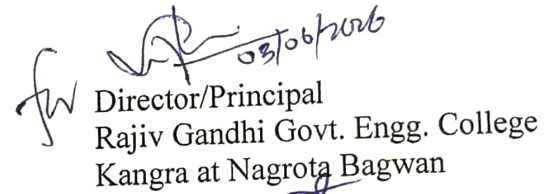 03/06/2026
for Director/Principal
Rajiv Gandhi Govt. Engg. College
Kangra at Nagrota Bagwan